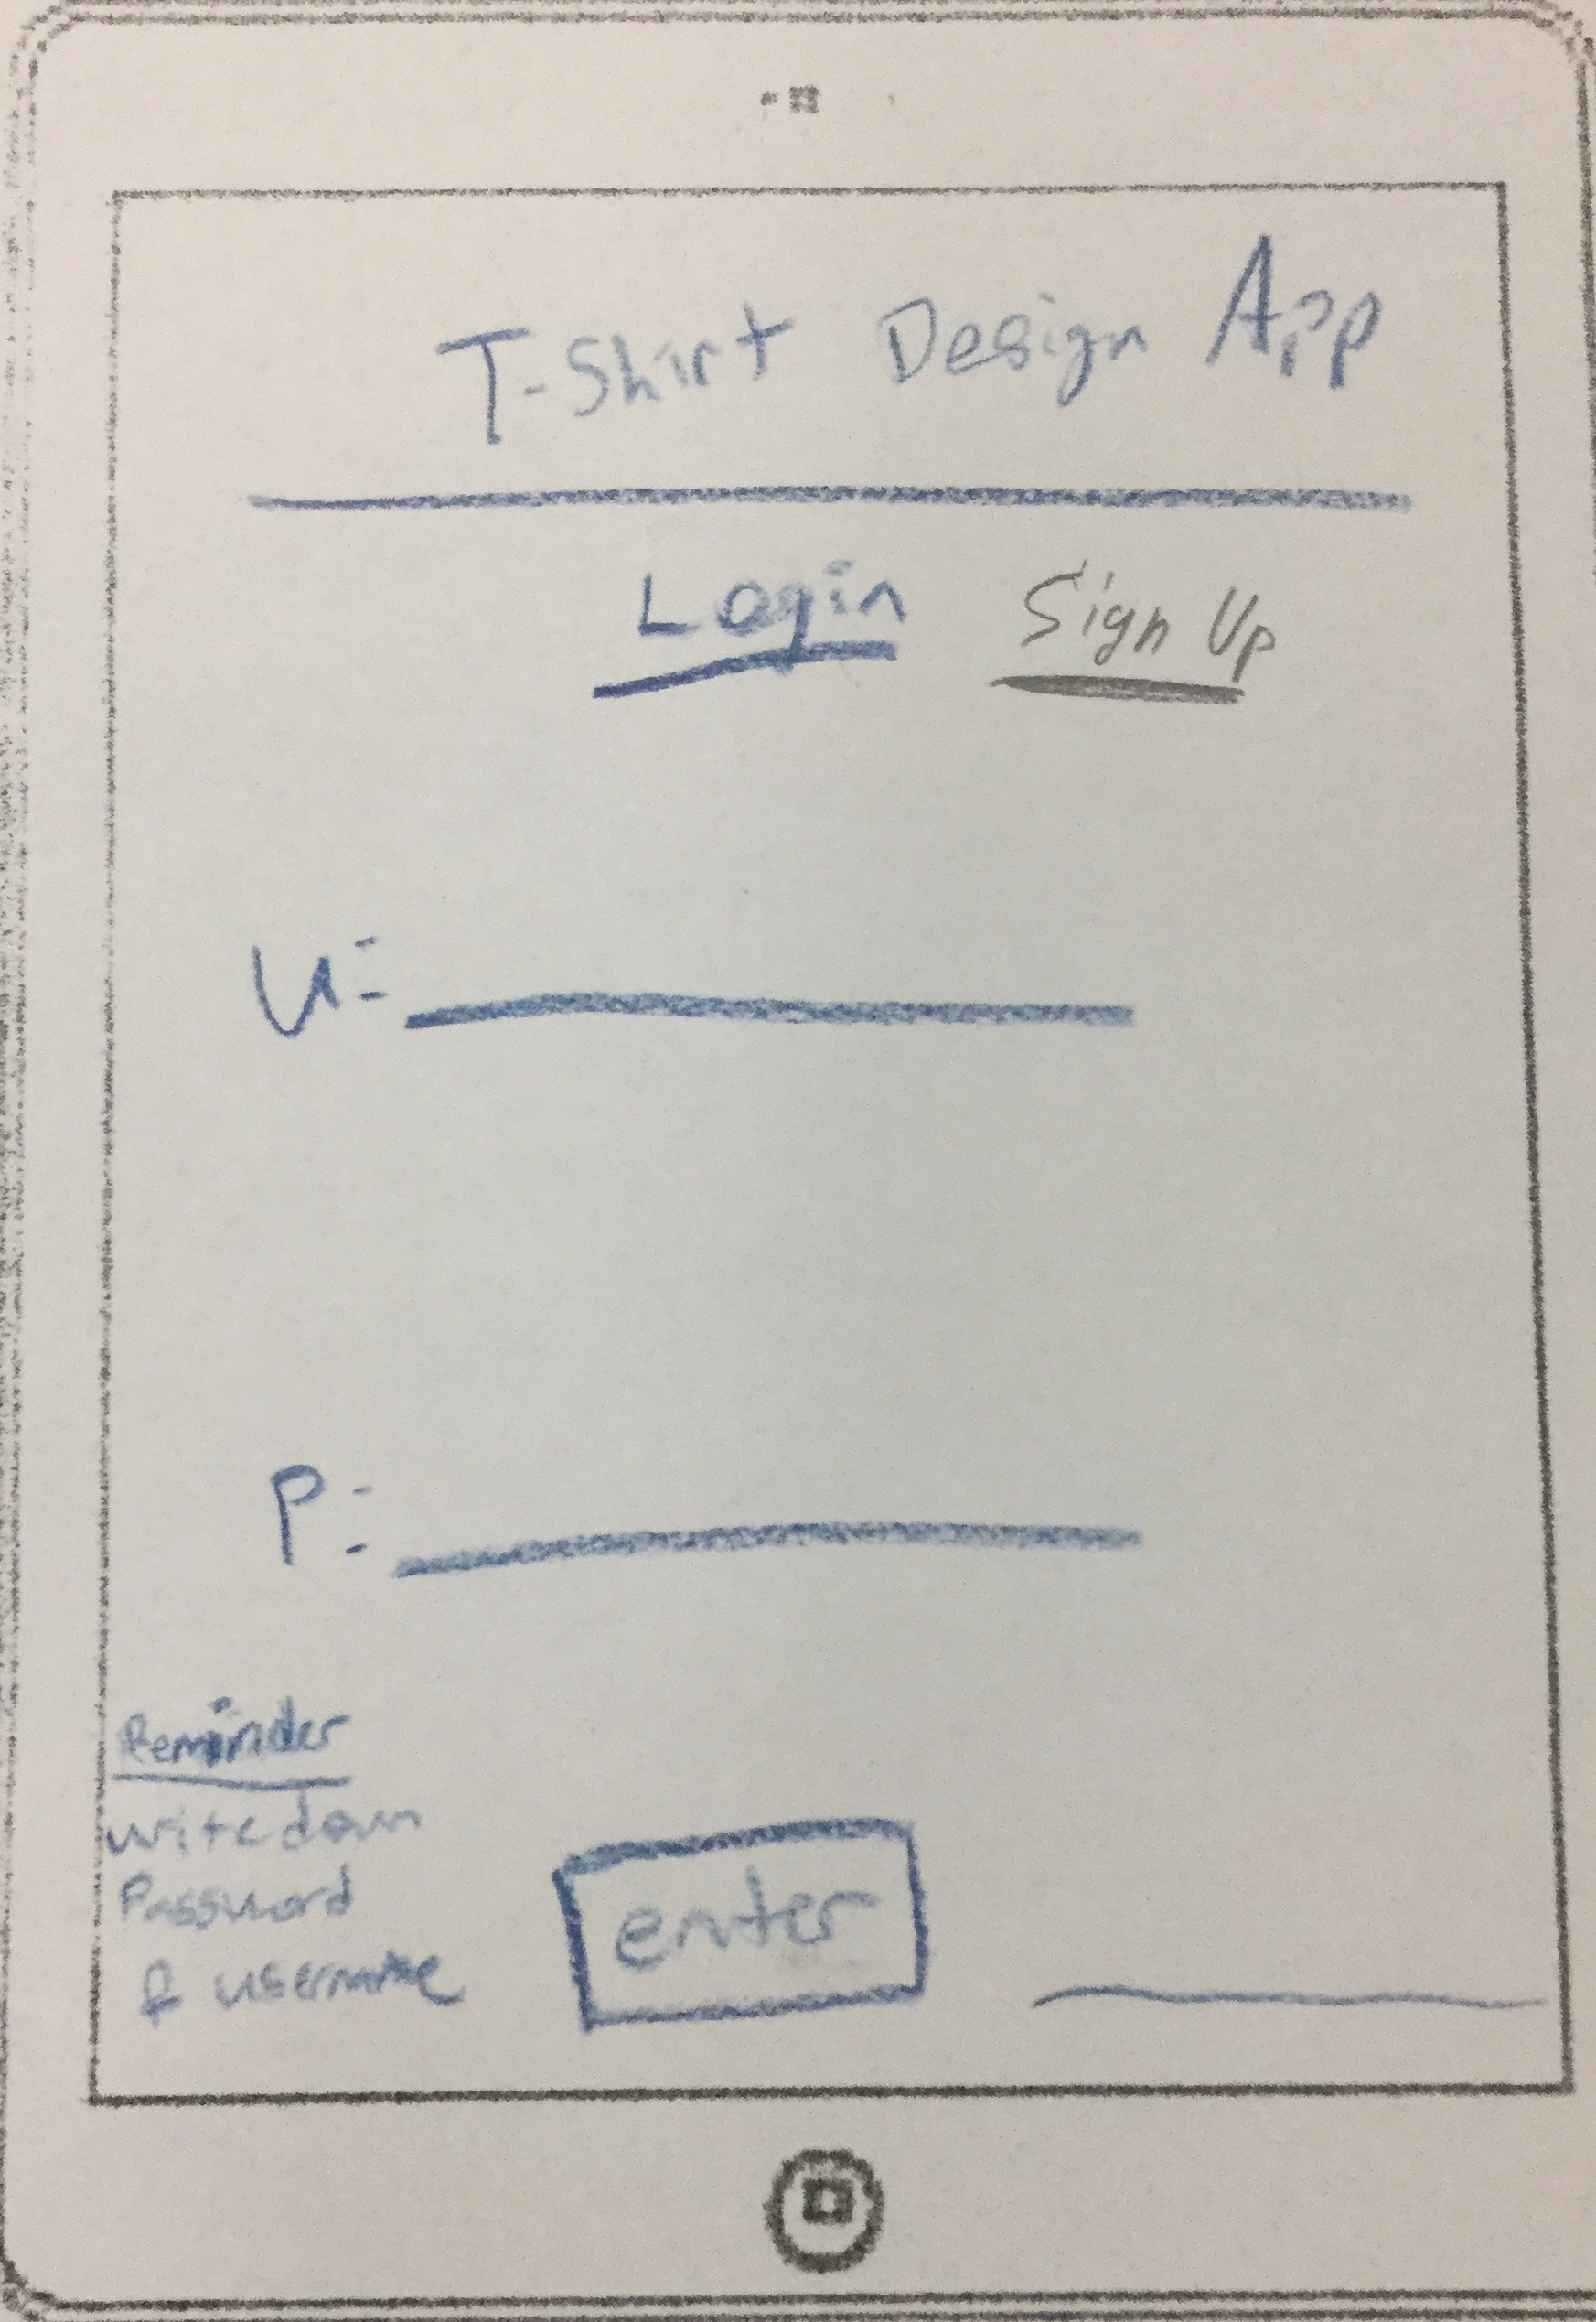 T-Shirt Design App
Login Sign Up
U:
P:
Reminder
write down
Password
& username
enter